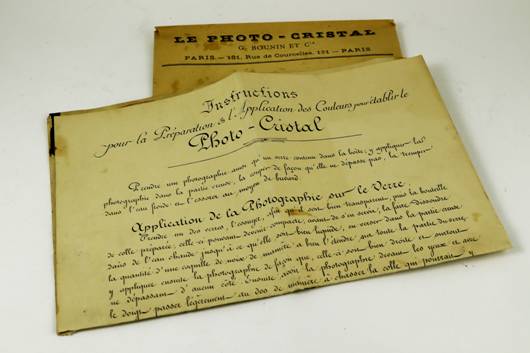 LE PHOTO-CRISTAL
G. BOUNIN ET Cie
PARIS. — 181, Rue de Courcelles, 181 — PARIS
Instructions
pour la Préparation & l'Application des Couleurs pour établir le
Photo-Cristal
Prendre une photographie ainsi qu'un verre contenu dans la boîte; y appliquer la
photographie dans la partie creuse, la couper de façon qu'elle ne dépasse pas, la tremper
dans l'eau froide et l'essorer au moyen de buvard.
Application de la Photographie sur le Verre
Prendre un des verres, l'essuyer, afin qu'il soit bien transparent, puis la bouteille
de colle préparée; celle-ci pouvant devenir compacte, avant de s'en servir, la faire dissoudre
dans de l'eau chaude jusqu'à ce qu'elle soit bien liquide, en verser dans la partie creuse
la quantité d'une coquille de noix de manière à bien l'étendre sur toute la partie du verre,
y appliquer ensuite la photographie de façon que celle-ci soit bien droite et surtout
ne dépassant d'aucun côté. Ensuite avoir la photographie devant les yeux et avec
le doigt passer légèrement au dos de manière à chasser la colle qui pourrait y